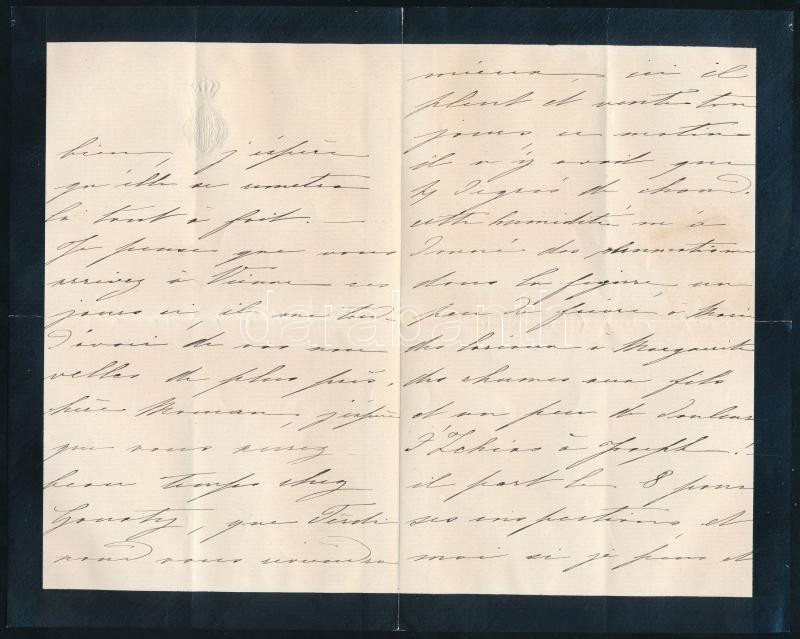 bien j'éspère
qu'élle se remettra
là tout à fait. —
Je pense que vous
arrivez à Vienne ces
jours ci, il me tar-
d'avoir de vos nou
velles de plus près,
chère Maman, j'éspère
que vous aurez
beau temps chez
que Ferdi
nand vous reviendra
mieux, ici il
pleut et vente tou
jours ce matin
il n'y avait que
degrés de chaud.
cette humidité m'a
donné des rhumatismes
dans la figure, un
peu de fièvre à Marie
des à Marguerite
des rhumes aux fils
et un peu de douleurs
d'Ischias à Joseph!
il part le 8 pour
ses inspections et
moi si je peux et
darabanth